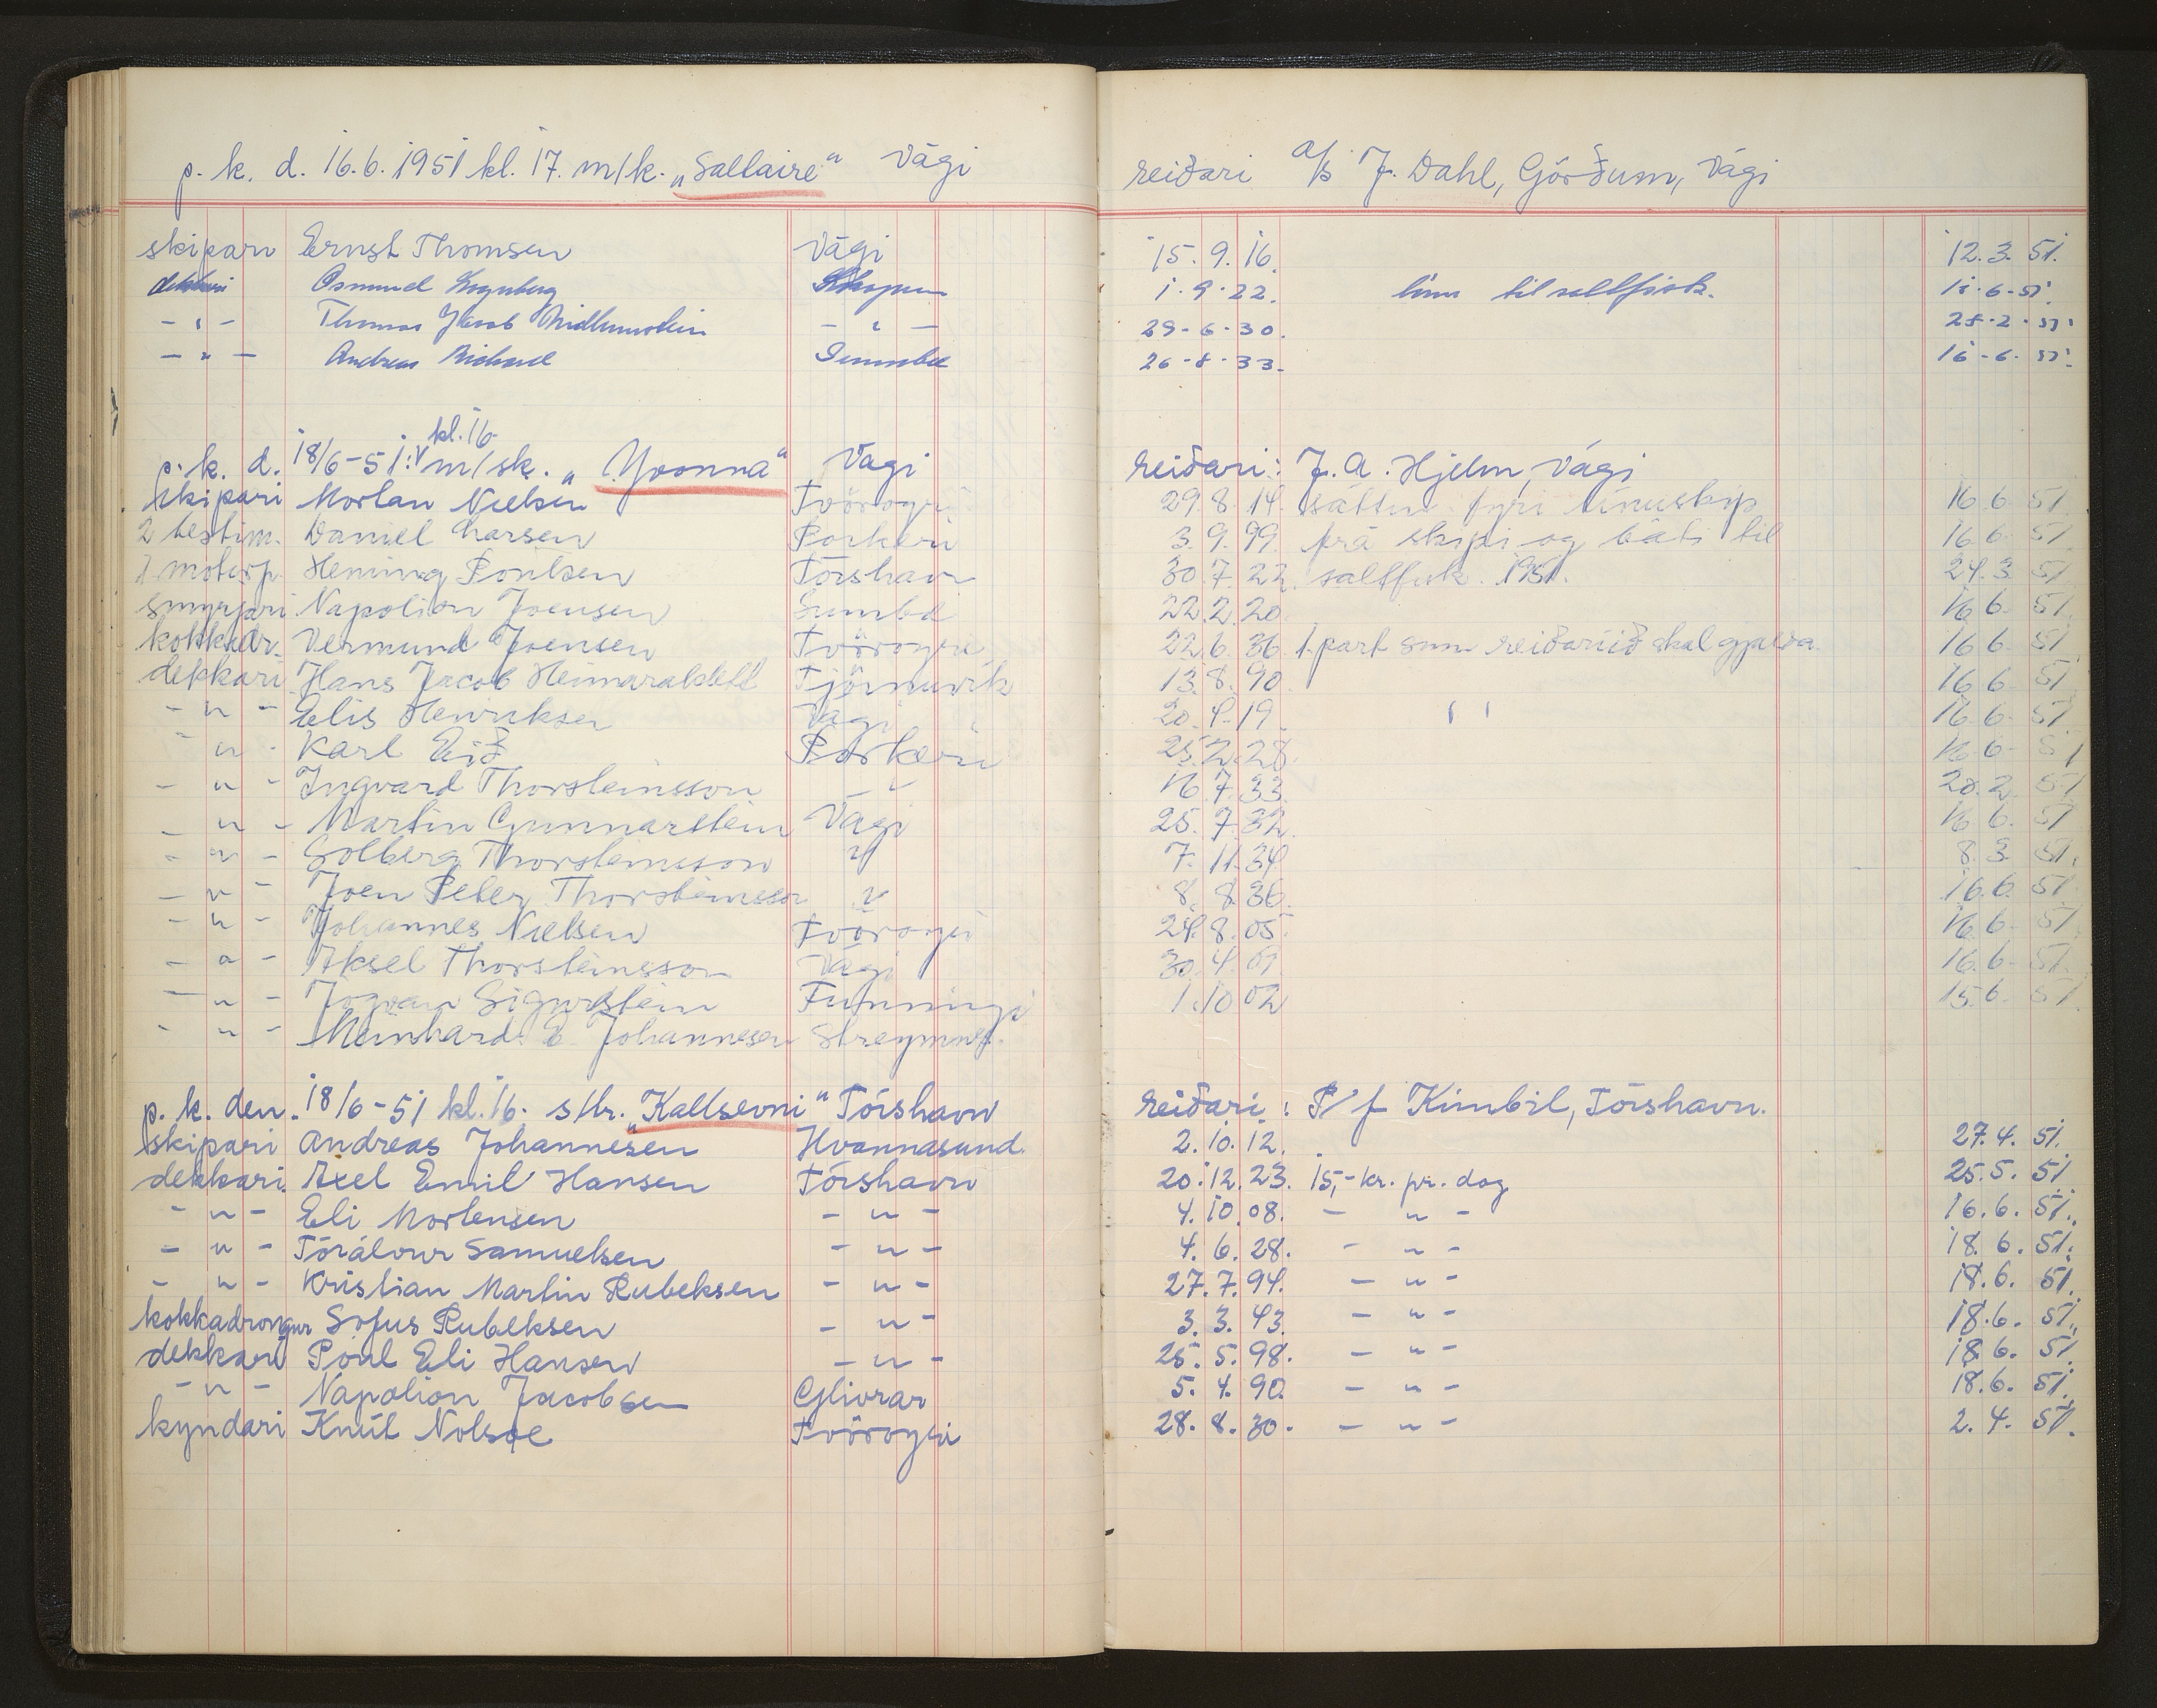 p. k. d. 16.6.1951 kl. 17. m/k. „Sallaire“ Vági reiðari a/s J. Dahl, Görðum, Vági
skipari Ernst Thomsen Vági 15. 9. 16. 12. 3. 51.
dekkari Osmund 1. 9. 22. til saltfisk. 6. 51.
- " - Thomas Jacob - " - 29. 6. 30. 28. 2. 51.
- " - Andreas Michael Sumba 26. 8. 33. 16. 6. 51.
kl. 16.
p. k. d. 18/6-51. m/sk. „Yvonna“ Vagi reiðari: J. A. Hjelm, Vági
skipari Mortan Nielsen Tvöroyri 29. 8. 14. sáttm. fyri línuskip 16. 6. 51.
2 bestim. Daniel Larsen Porkeri 3. 9. 99. frá skipi og báti til 16. 6. 51
1 motorp. Heming Poulsen Tórshavn 30. 7. 22. saltfisk. 1951. 24. 3. 51
smyrjari Napolion Joensen Sumba 22. 2. 20. 16. 6. 51.
kokkadr. Vermund Joensen Tvöroyri 22. 6. 36. 1. part sum reiðaríið skal gjalda. 16. 6. 51
dekkari Hans Jacob Tjörnuvik 13. 8. 90. 16. 6. 51
- " - Elis Henriksen Vági 20. 4. 19. " 16. 6. 51
- " - Karl Eið Porkeri 25. 2. 28. 16. 6. 51
- " - Ingvard Thorsteinsson - " 16. 7. 33. 28. 2. 51
- " - Martin Gunnarstein Vági 25. 7. 32. 16. 6. 51
- " - Solberg Thorsteinsson " 7. 11. 34 8. 3. 51.
- " - Joen Peter Thorsteinsson " 8. 8. 36. 16. 6. 51.
- " - Johannes Nielsen Tvöroyri 24. 8. 05. 16. 6. 51
- " - Aksel Thorsteinsson Vági 30. 4. 01. 16. 6. 51.
- " - Jogvan Sigurdstein Funningi 1. 10 02 15. 6. 51.
- " - Meinhard E. Johannesen Streymnes.
p. k. den. 18/6-51 kl. 16. s/tr. „Kallsevni“ Tórshavn reiðari: P/f Kimbil, Tórshavn.
skipari Andreas Johannesen Hvannasund. 2. 10. 12. 27. 4. 51.
dekkari. Axel Emil Hansen Tórshavn 20. 12. 23. 15,- kr. pr. dag 25. 5. 51.
- " - Eli Mortensen - " - 4. 10. 08. - " - 16. 6. 51.
- " - Tórálvur Samuelsen - " - 4. 6. 28. - " - 18. 6. 51.
- " - Kristian Martin Rubeksen - " - 27. 7. 94. - " - 18. 6. 51.
kokkadrongur Sofus Rubeksen - " - 3. 3. 43. - " - 18. 6. 51.
dekkari Póul Eli Hansen - " - 25. 5. 98. - " - 18. 6. 51.
- " - Napolion Jacobsen Glivrar 5. 4. 90. - " - 18. 6. 51.
kyndari Knút Nolsøe Tvöroyri 28. 8. 30. - " - 2. 4. 51.